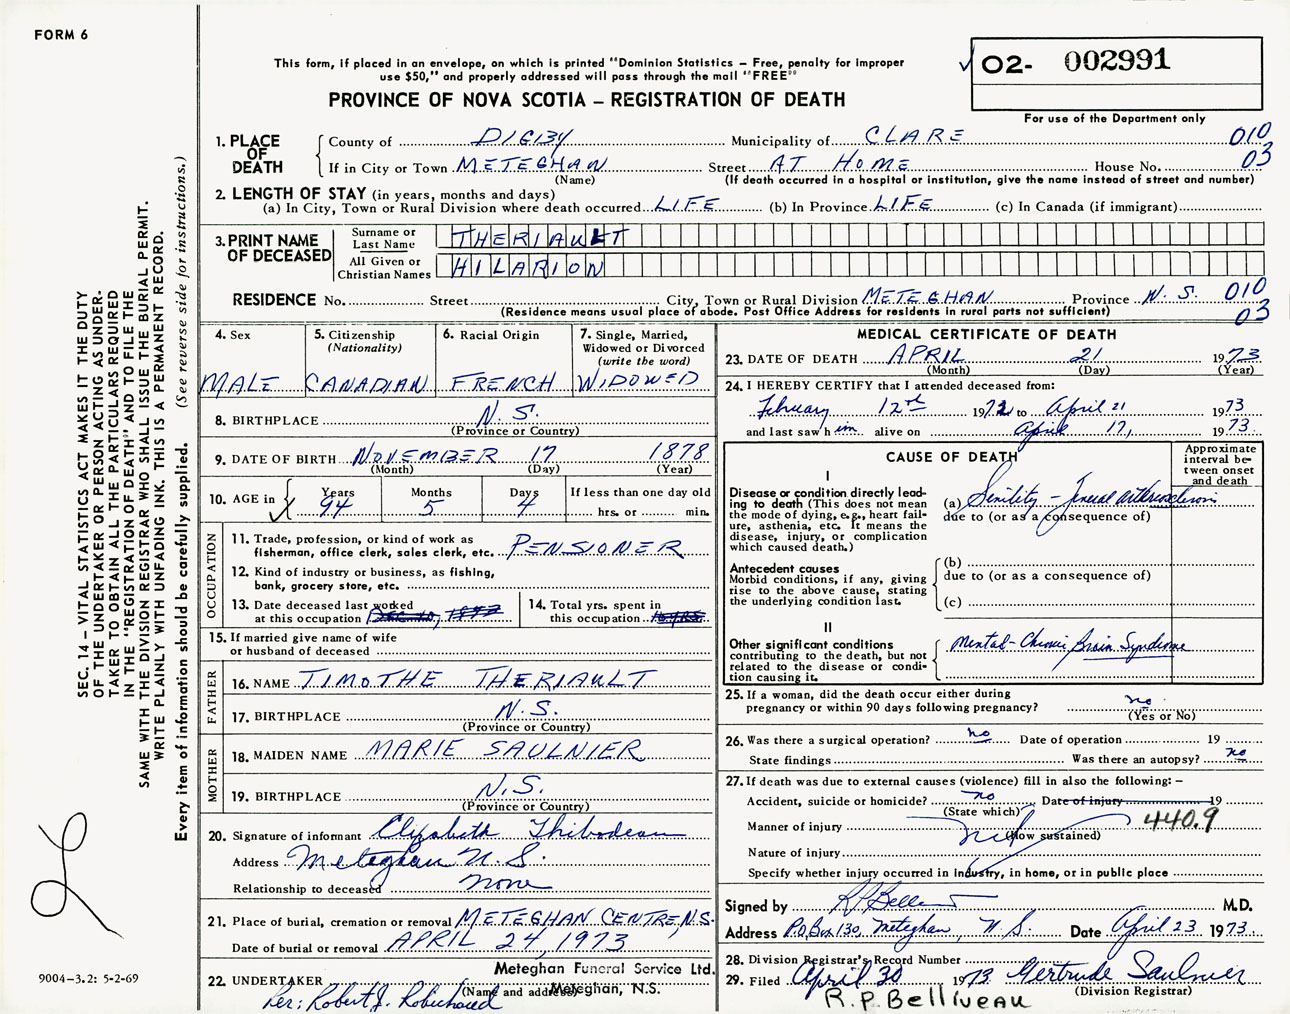 FORM 6
This form, if placed in an envelope, on which is printed "Dominion Statistics – Free, penalty for improper
use $50," and properly addressed will pass through the mail "FREE"
PROVINCE OF NOVA SCOTIA – REGISTRATION OF DEATH
O2- 002991
For use of the Department only
SEC. 14 – VITAL STATISTICS ACT MAKES IT THE DUTY
OF THE UNDERTAKER OR PERSON ACTING AS UNDER-
TAKER TO OBTAIN ALL THE PARTICULARS REQUIRED
IN THE "REGISTRATION OF DEATH" AND TO FILE THE
SAME WITH THE DIVISION REGISTRAR WHO SHALL ISSUE THE BURIAL PERMIT.
WRITE PLAINLY WITH UNFADING INK. THIS IS A PERMANENT RECORD.
Every item of information should be carefully supplied. (See reverse side for instructions.)
1. PLACE OF DEATH
County of DIGBY Municipality of CLARE 010
If in City or Town METEGHAN Street AT HOME House No. 03
(Name) (If death occurred in a hospital or institution, give the name instead of street and number)
2. LENGTH OF STAY (in years, months and days)
(a) In City, Town or Rural Division where death occurred LIFE (b) In Province LIFE (c) In Canada (if immigrant)
3. PRINT NAME OF DECEASED
Surname or Last Name THERIAULT
All Given or Christian Names HILARION
RESIDENCE No. Street City, Town or Rural Division METEGHAN Province N. S. 010
(Residence means usual place of abode. Post Office Address for residents in rural parts not sufficient) 03
4. Sex
MALE
5. Citizenship
(Nationality)
CANADIAN
6. Racial Origin
FRENCH
7. Single, Married,
Widowed or Divorced
(write the word)
WIDOWED
8. BIRTHPLACE N.S.
(Province or Country)
9. DATE OF BIRTH NOVEMBER 17 1878
(Month) (Day) (Year)
10. AGE in
Years Months Days If less than one day old
94 5 4 hrs. or min.
OCCUPATION
11. Trade, profession, or kind of work as
fisherman, office clerk, sales clerk, etc. PENSIONER
12. Kind of industry or business, as fishing,
bank, grocery store, etc.
13. Date deceased last worked
at this occupation
14. Total yrs. spent in
this occupation
15. If married give name of wife
or husband of deceased
FATHER
16. NAME TIMOTHE THERIAULT
17. BIRTHPLACE N.S.
(Province or Country)
MOTHER
18. MAIDEN NAME MARIE SAULNIER
19. BIRTHPLACE N.S.
(Province or Country)
20. Signature of informant Elizabeth Thibodeau
Address Meteghan N.S.
Relationship to deceased none
21. Place of burial, cremation or removal METEGHAN CENTRE, N.S.
Date of burial or removal APRIL 24, 1973
22. UNDERTAKER Meteghan Funeral Service Ltd.
(Name and address) Meteghan, N.S.
Per: Robert J. Robichaud
9004–3.2: 5-2-69
MEDICAL CERTIFICATE OF DEATH
23. DATE OF DEATH APRIL 21 1973
(Month) (Day) (Year)
24. I HEREBY CERTIFY that I attended deceased from:
February 12 1972 to April 21 1973
and last saw him alive on April 17, 1973.
CAUSE OF DEATH
Approximate
interval be-
tween onset
and death
I
Disease or condition directly lead-
ing to death (This does not mean
the mode of dying, e.g., heart fail-
ure, asthenia, etc. It means the
disease, injury, or complication
which caused death.)
(a) Senility – General arteriosclerosis
due to (or as a consequence of)
Antecedent causes
Morbid conditions, if any, giving
rise to the above cause, stating
the underlying condition last.
(b)
due to (or as a consequence of)
(c)
II
Other significant conditions
contributing to the death, but not
related to the disease or condi-
tion causing it.
Mental-Chronic Brain Syndrome
25. If a woman, did the death occur either during
pregnancy or within 90 days following pregnancy? no
(Yes or No)
26. Was there a surgical operation? no Date of operation 19
State findings Was there an autopsy? no
27. If death was due to external causes (violence) fill in also the following: –
Accident, suicide or homicide? no Date of injury 19
(State which)
Manner of injury (How sustained) 440.9
Nature of injury
Specify whether injury occurred in Industry, in home, or in public place
Signed by M.D.
Address P.O. Box 130, Meteghan, N.S. Date April 23 1973.
28. Division Registrar's Record Number
29. Filed April 30 1973 Gertrude Saulnier
(Division Registrar)
R.P. Belliveau